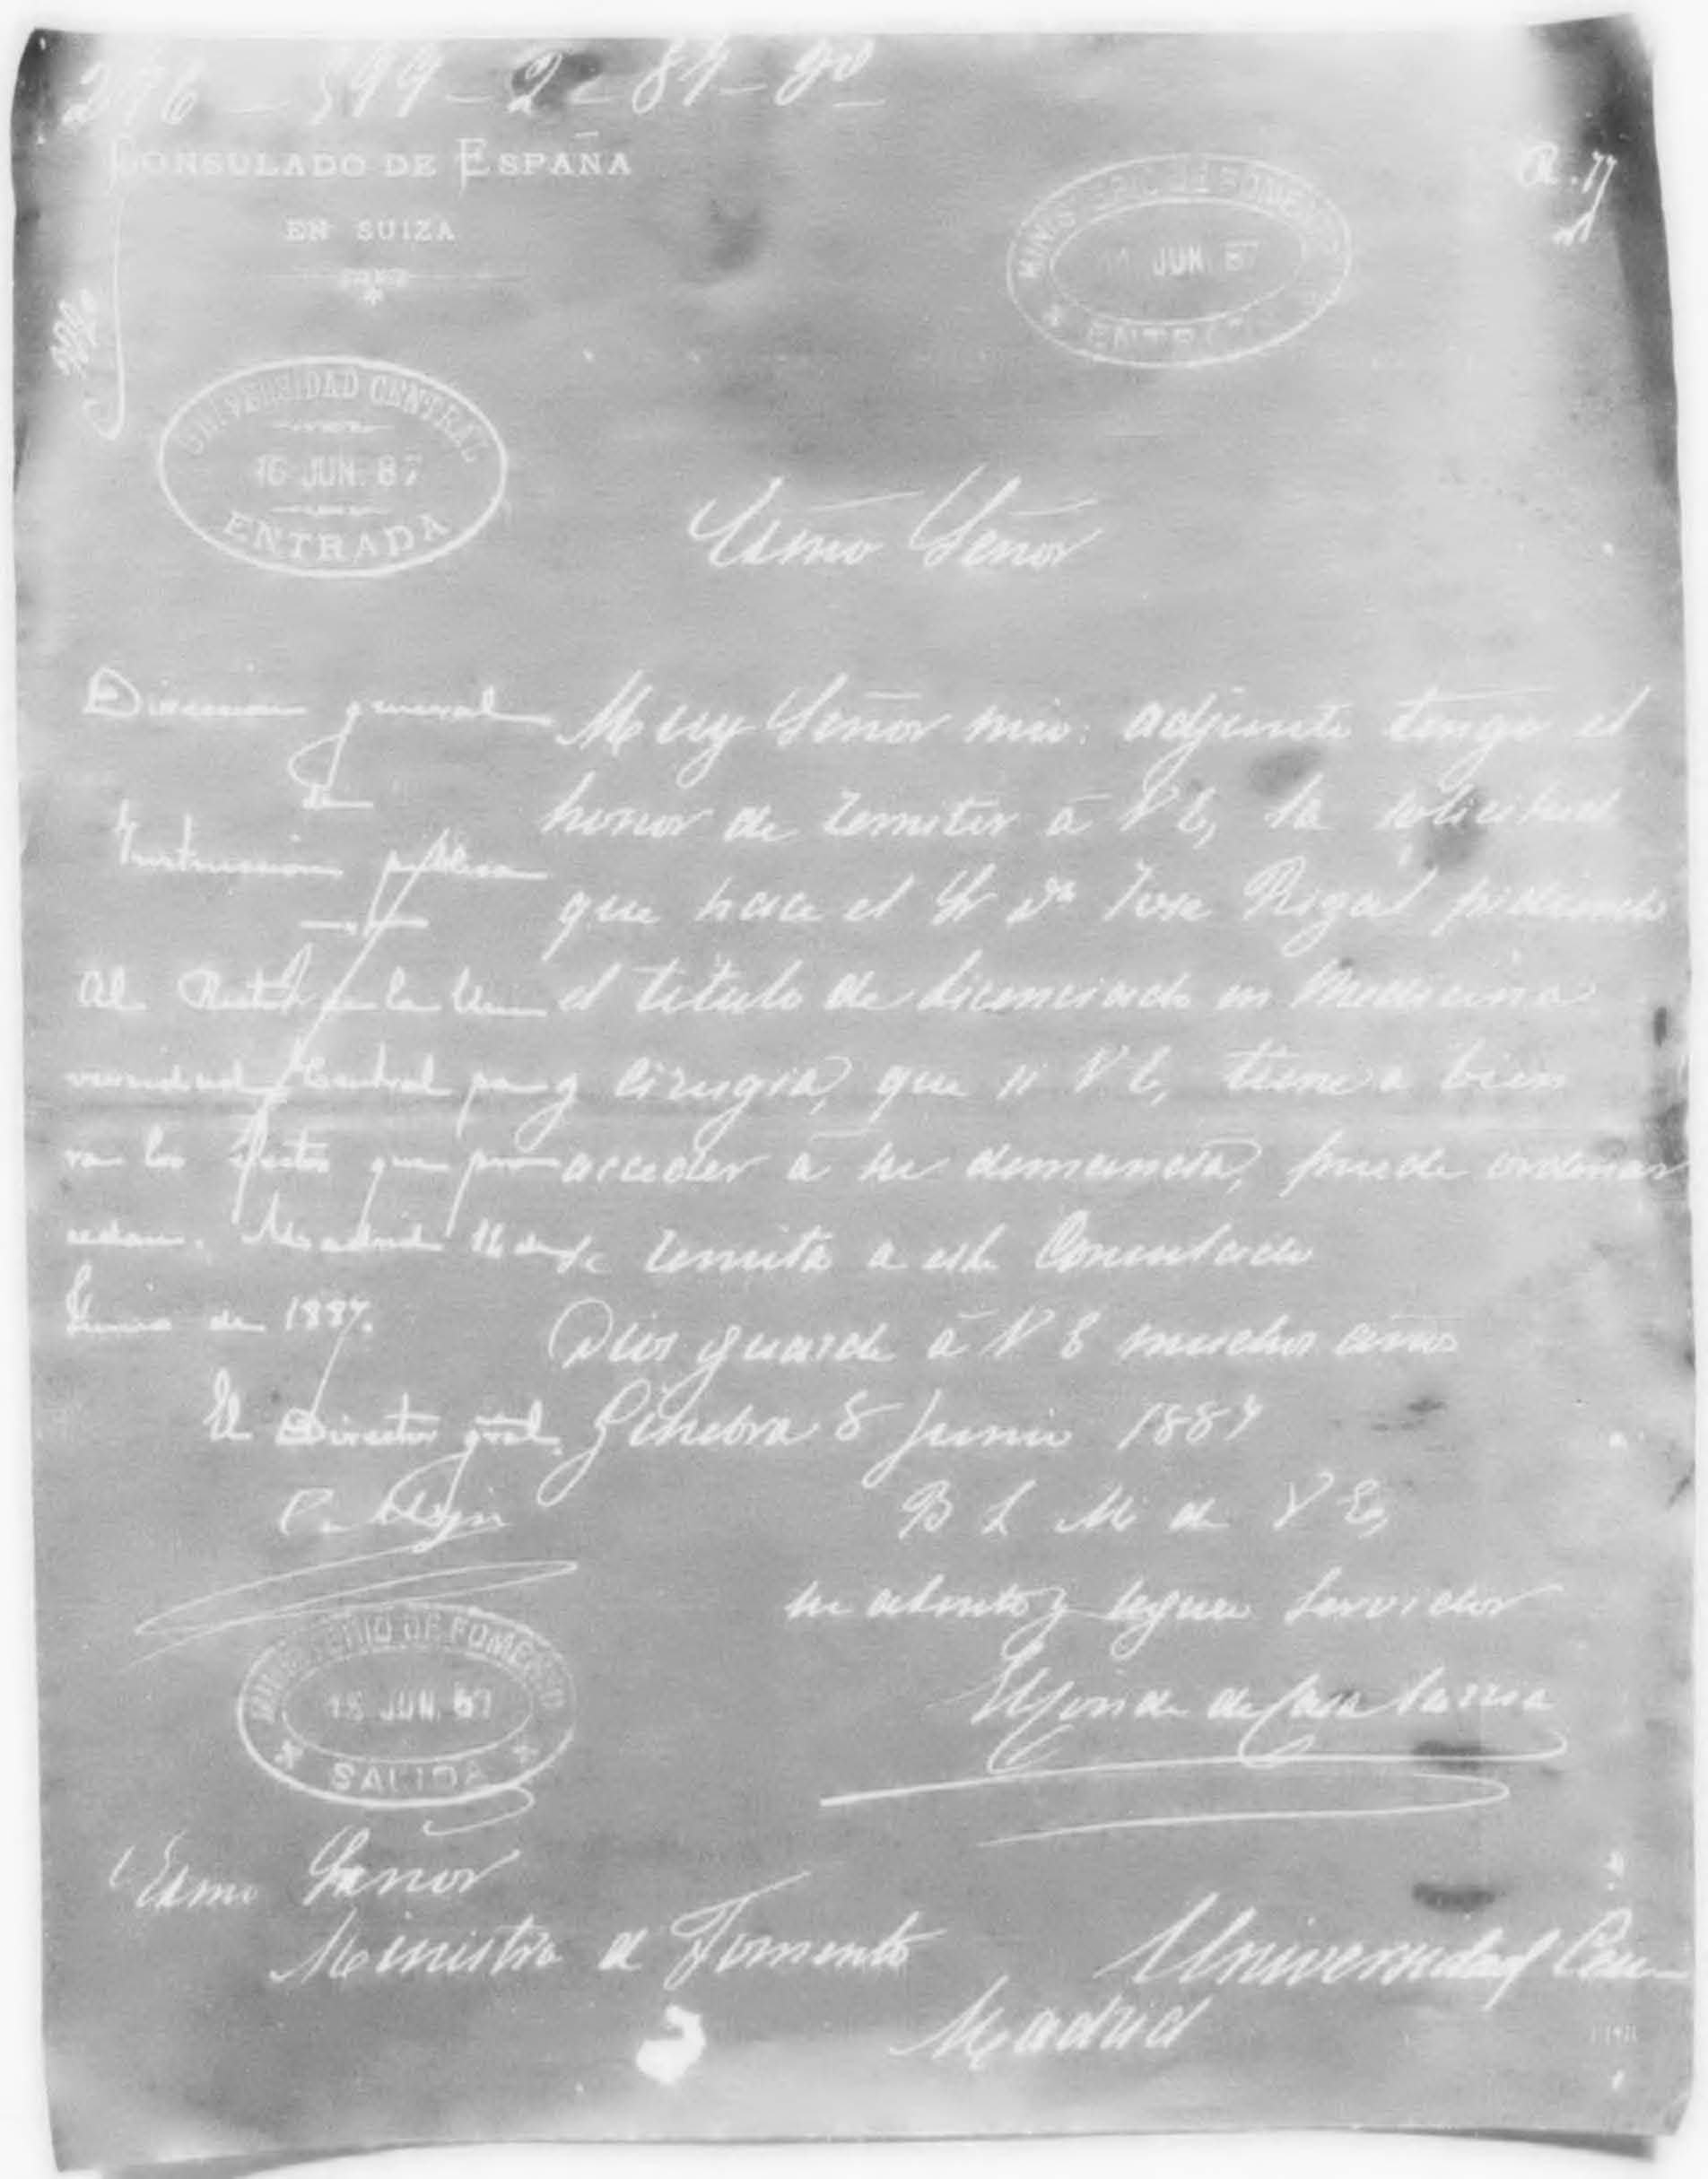 CONSULADO DE ESPAÑA
EN SUIZA
MINISTERIO DE FOMENTO
11 JUN. 87
ENTRADA
UNIVERSIDAD CENTRAL
16 JUN. 87
ENTRADA
Exmo Señor
Muy Señor mio: adjunta tengo el
honor de remitir á V E, la solicitud
que hace el Sr Dn Jose Rizal pidiendo
el titulo de Licenciado en Medicina
y Cirugia, que si V E, tiene a bien
acceder á su demanda, puede ordenar
se remita a este Consulado
Dios guarde á V E muchos años
Ginebra 8 Junio 1887
B L M de V E,
su atento y seguro servidor
El Conde de Casa Sarria
Dirección general
de
Instruccion publica
Al Rector de la Uni
versidad Central pa
ra los efectos que pro
cedan. Madrid 11 de
Junio de 1887.
El Director gral.
MINISTERIO DE FOMENTO
15 JUN. 87
SALIDA
Exmo Señor
Ministro de Fomento
Madrid
Universidad Cen